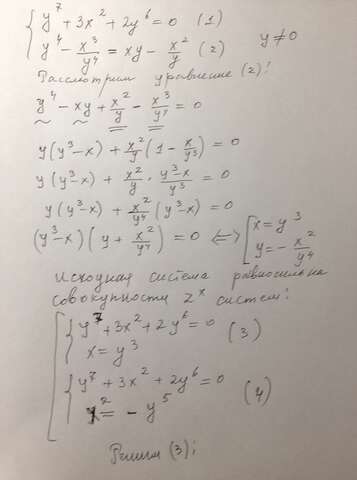 { y⁷ + 3x² + 2y⁶ = 0 (1)
{ y⁴ - x³/y⁴ = xy - x²/y (2) y ≠ 0
Рассмотрим уравнение (2):
y⁴ - xy + x²/y - x³/y⁴ = 0
y(y³-x) + x²/y (1 - x/y³) = 0
y(y³-x) + x²/y · (y³-x)/y³ = 0
y(y³-x) + x²/y⁴ (y³-x) = 0
(y³-x)(y + x²/y⁴) = 0 ⟺ [ x = y³
[ y = - x²/y⁴
Исходная система равносильна
совокупности 2ˣ систем:
[ { y⁷ + 3x² + 2y⁶ = 0 (3)
{ x = y³
{ y⁷ + 3x² + 2y⁶ = 0 (4)
{ x² = - y⁵
Решим (3):